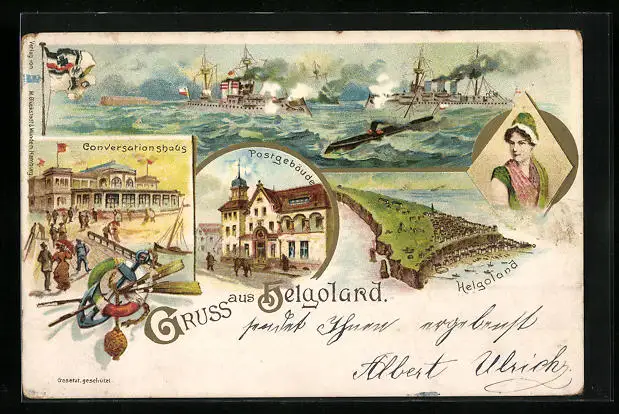 Verlag von M. Glückstadt & Münden, Hamburg.
Conversationshaus
Postgebäude
Helgoland
Gruss aus Helgoland.
sendet Ihnen ergebenst
Albert Ulrich
Gesetzl. geschützt